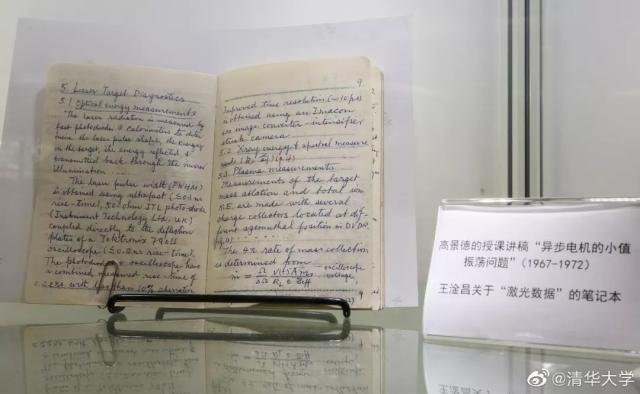 5 Laser Target Diagnostics
5.1 Optical energy measurements
The laser radiation is measured by
fast photodiodes & calorimeters to deter-
mine the laser pulse shape, the energy
on the target, the energy reflected &
transmitted back through the mirror
illumination
The laser pulse width (FWHM)
is obtained using ultrafast
rise-time), 50 ohm ITL photo-diode
(Instrument Technology Ltd, U.K.)
coupled directly to the deflection
plates of a Tektronix
oscilloscope (≤0.8 ns rise-time).
The photodiode & oscilloscope have
a combined measured rise-time of
with less than 10% aberration
9
Improved time resolution (~10 ps)
is obtained using an Imacon
image converter-intensifier
streak camera
5.2 Xray energy & spectral measure
5.3 Plasma measurements
Measurements of the target
mass ablation and total ion
K.E. are made with several
charge collectors located at dif-
ferent azimuthal position in
The 4π rate of mass collection
is determined from
oscilloscope
voltage
高景德的授课讲稿“异步电机的小值
振荡问题”(1967-1972)
王淦昌关于“激光数据”的笔记本
@清华大学